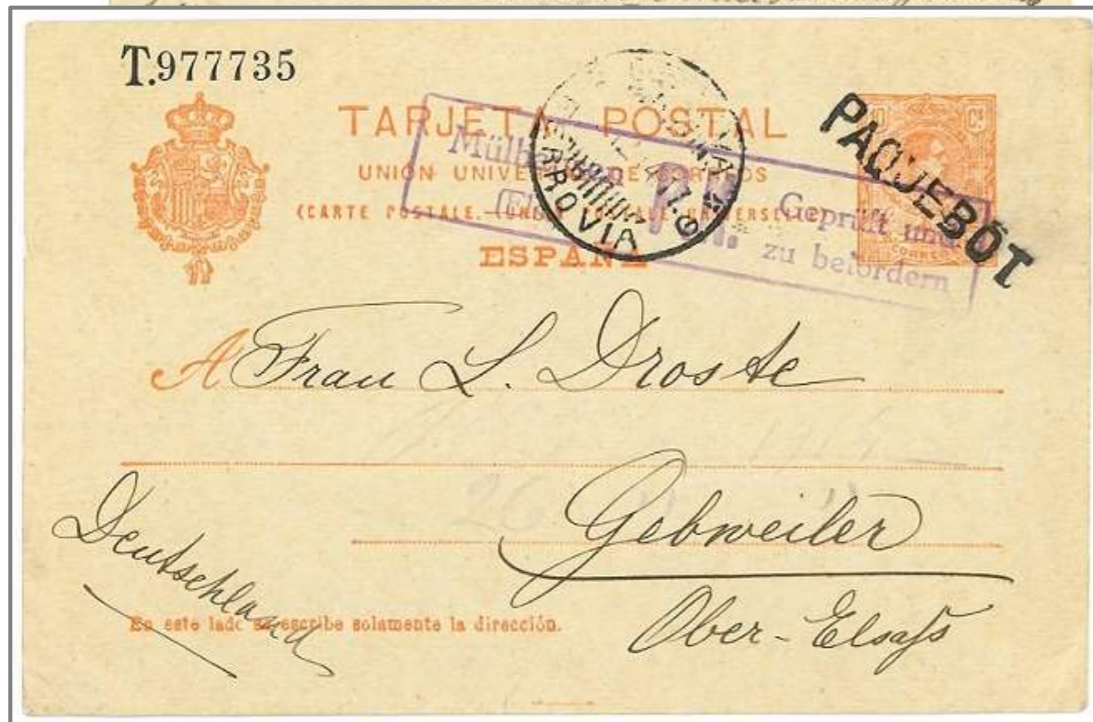 T.977735
TARJETA POSTAL
UNIÓN UNIVERSAL DE CORREOS
(CARTE POSTALE.—UNION POSTALE UNIVERSELLE)
ESPAÑA
PAQUEBOT
Mülhausen P.K. Geprüft und
zu befördern
FERROVIA
A Frau L. Droste
Gebweiler
Ober-Elsaſs
Deutschland
En este lado se escribe solamente la dirección.